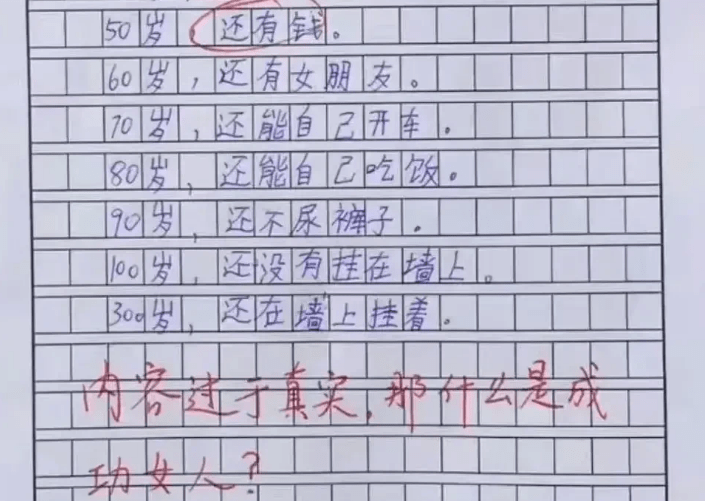 50岁，还有钱。
60岁，还有女朋友。
70岁，还能自己开车。
80岁，还能自己吃饭。
90岁，还不尿裤子。
100岁，还没有挂在墙上。
300岁，还在墙上挂着。
内容过于真实，那什么是成
功女人？